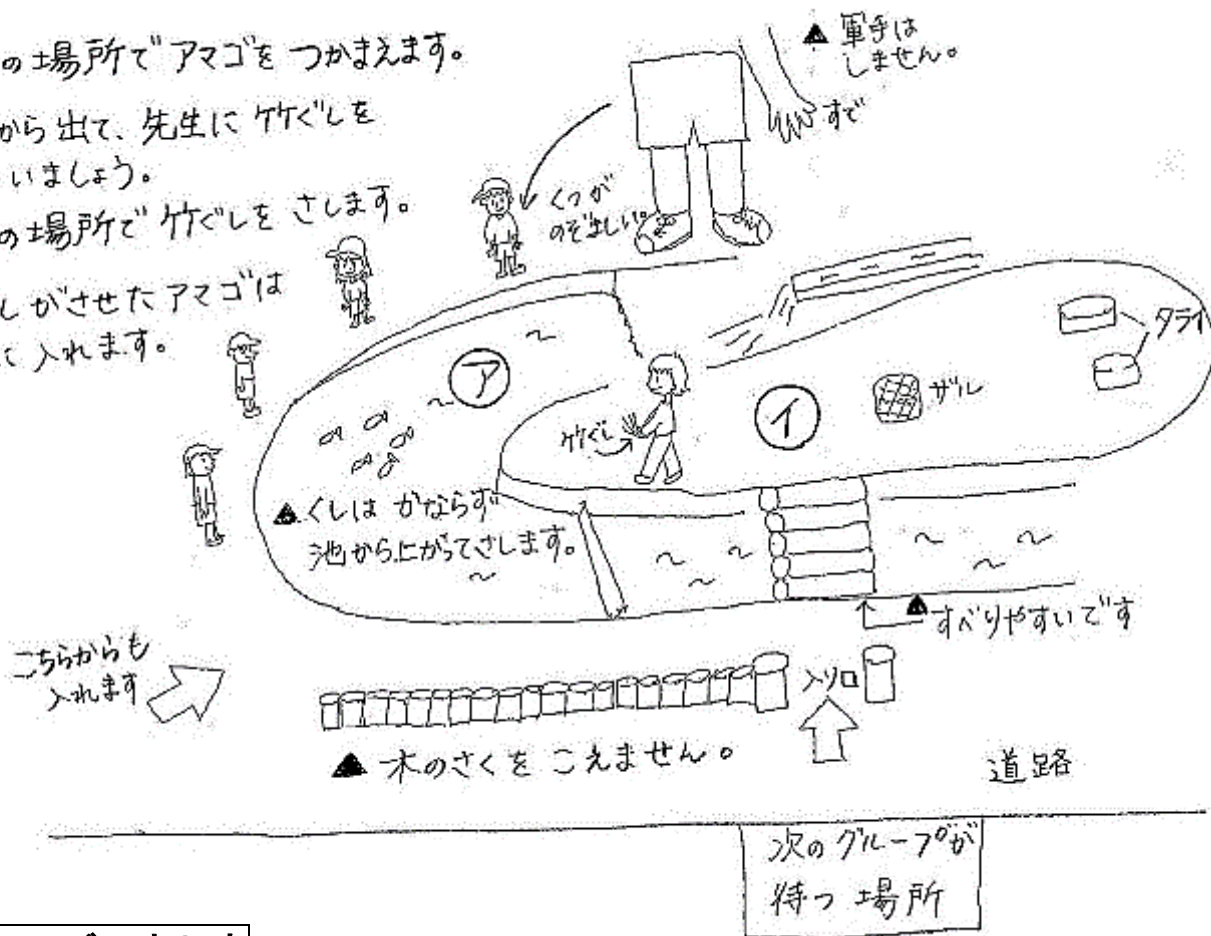 の場所でアマゴをつかまえます。
から出て、先生に竹ぐしを
いましょう。
の場所で竹ぐしをさします。
しがさせたアマゴは
に入れます。
▲ 軍手は
しません。
すで
くつが
のぞましい。
ア
竹ぐし
イ
ザル
タライ
▲ くしは かならず
池から上がってさします。
▲ すべりやすいです
こちらからも
入れます
入り口
▲ 木のさくを こえません。
道路
次のグループが
待つ 場所